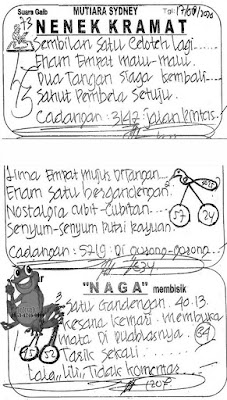 Suara Gaib
MUTIARA SYDNEY
Tgl: 17/08/2020
NENEK KRAMAT
Sembilan Satu Celoteh lagi...
Enam Empat malu-malu...
Dua Tangan Siaga kembali...
Sahut Pembela Setuju.
Cadangan: 3142 jalan pintas.
Lima Empat mulus Ditangan...
Enam Satu bergandengan
Nostalgia Cubit-Cubitan...
Senyum-Senyum Putri kayuan.
57 24
Cadangan: 5719: Di gorong-gorong...
"NAGA" membisik
Satu Gandengan. 40.13.
Kesana Kemari membuka
mata Di
84
Tarik Sekali...
Lala, Lili, Tidak komentar...
1207